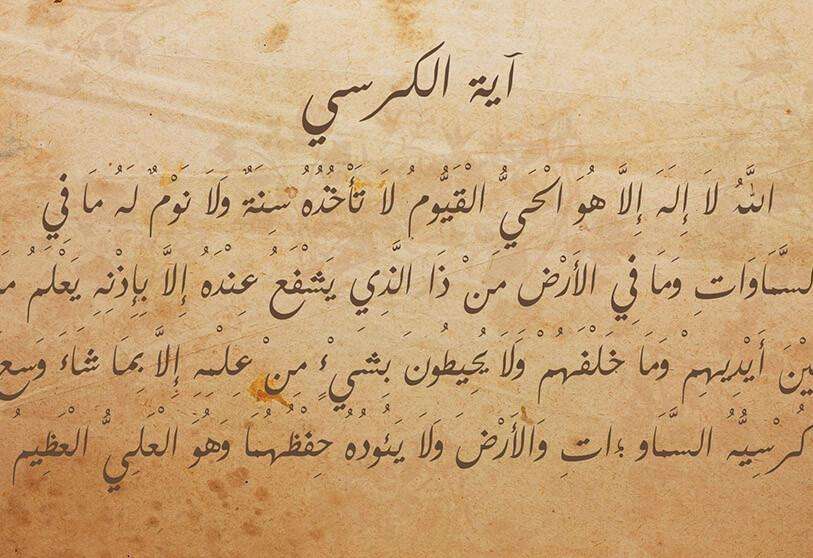 آية الكرسي
اللَّهُ لاَ إِلَهَ إِلاَّ هُوَ الْحَيُّ الْقَيُّومُ لاَ تَأْخُذُهُ سِنَةٌ وَلاَ نَوْمٌ لَهُ مَا فِي
السَّمَاوَاتِ وَمَا فِي الأَرْضِ مَنْ ذَا الَّذِي يَشْفَعُ عِنْدَهُ إِلاَّ بِإِذْنِهِ يَعْلَمُ
أَيْدِيهِمْ وَمَا خَلْفَهُمْ وَلاَ يُحِيطُونَ بِشَيْءٍ مِنْ عِلْمِهِ إِلاَّ بِمَا شَاءَ وَسِعَ
كُرْسِيُّهُ السَّمَاو ؛اتِ وَالأَرْضَ وَلاَ يَئُودُهُ حِفْظُهُمَا وَهُوَ الْعَلِيُّ الْعَظِيمُ